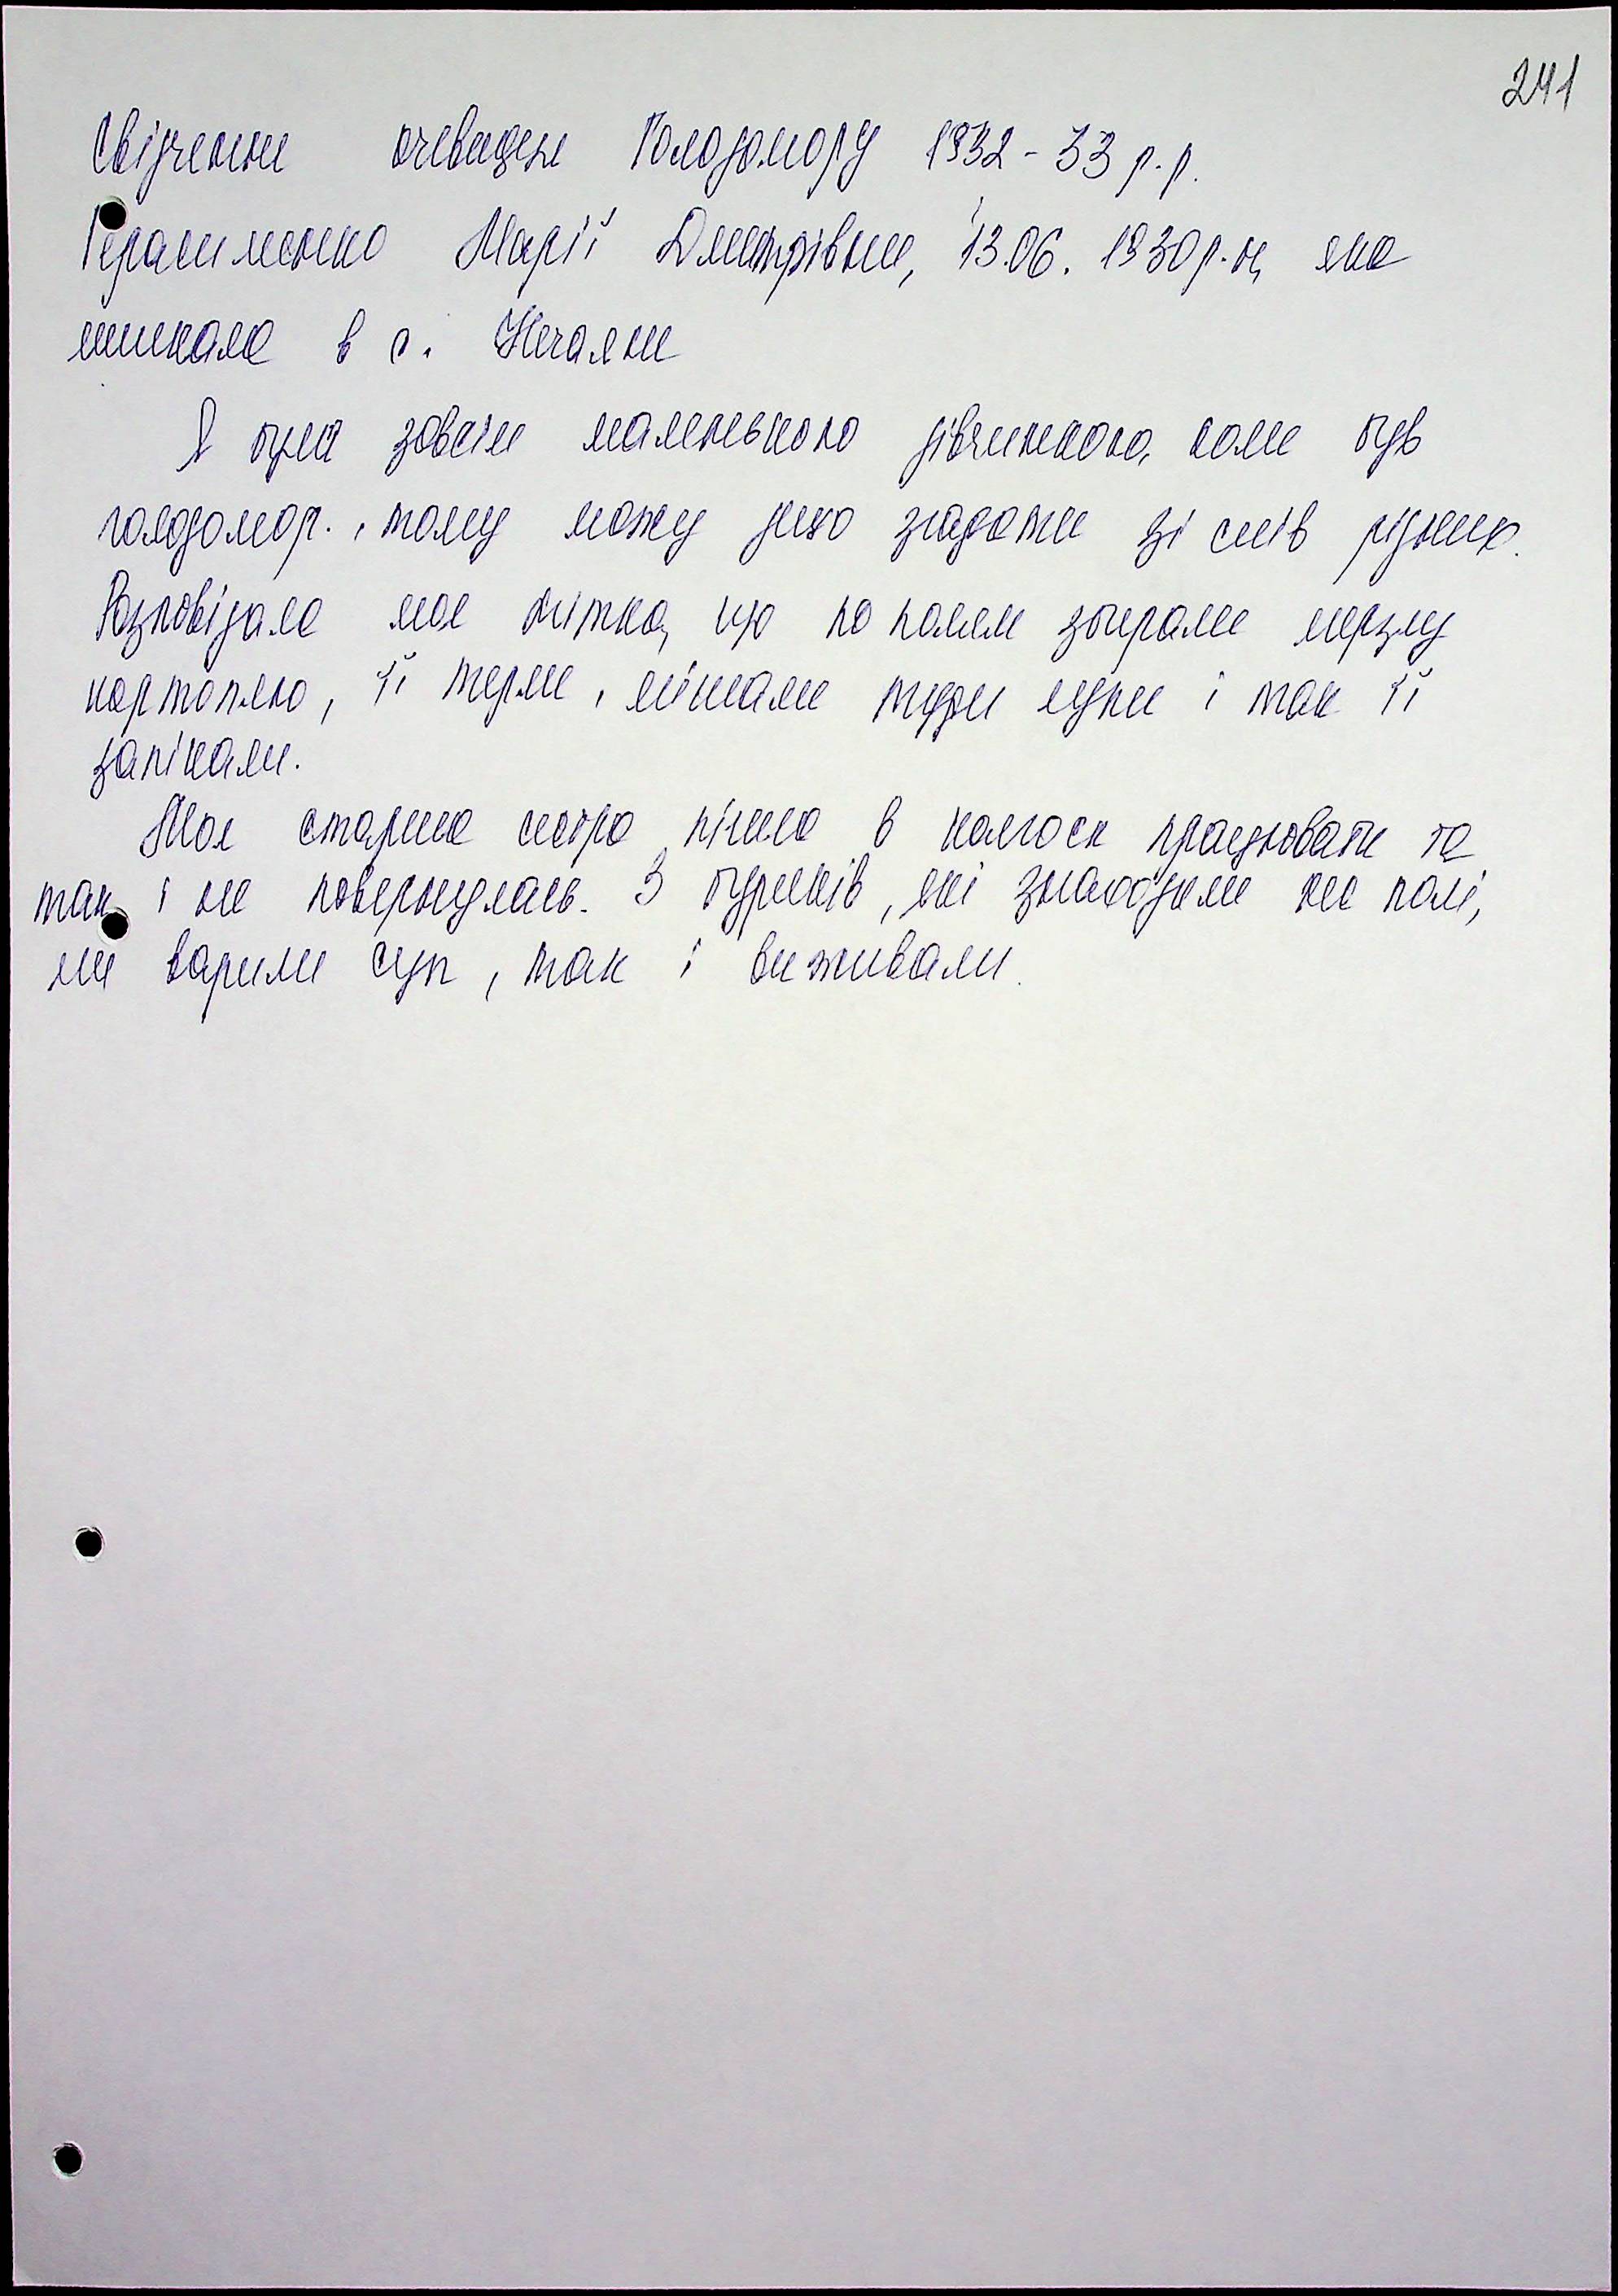 241
Свідчення очевидця Голодомору 1932-33 р.р.
Герасименко Марії Дмитрівни, 13.06.1930р.н, яка
мешкала в с. Нечаяне
Я була зовсім маленькою дівчинкою, коли був
голодомор., тому можу дещо згадати зі слів рідних.
Розповідала моя тітка, що по полям збирали мерзлу
картоплю, її терли, мішали туди муки і так її
запікали.
Моя старша сестра пішла в колгосп працювати та
так і не повернулась. З буряків, які знаходили на полі,
ми варили суп, так і виживали.